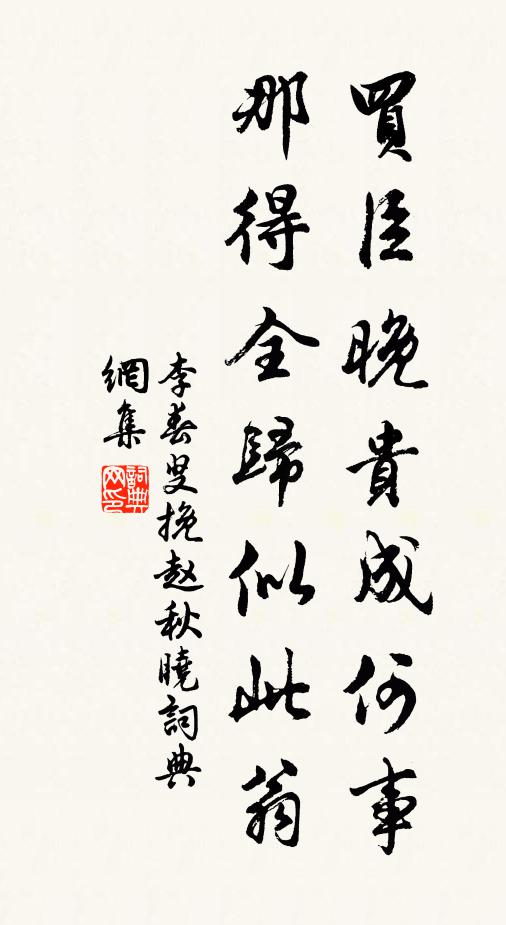 買臣晚貴成何事
那得全歸似此翁
李春叟挽赵秋曉詞典
網集
詞典
网印